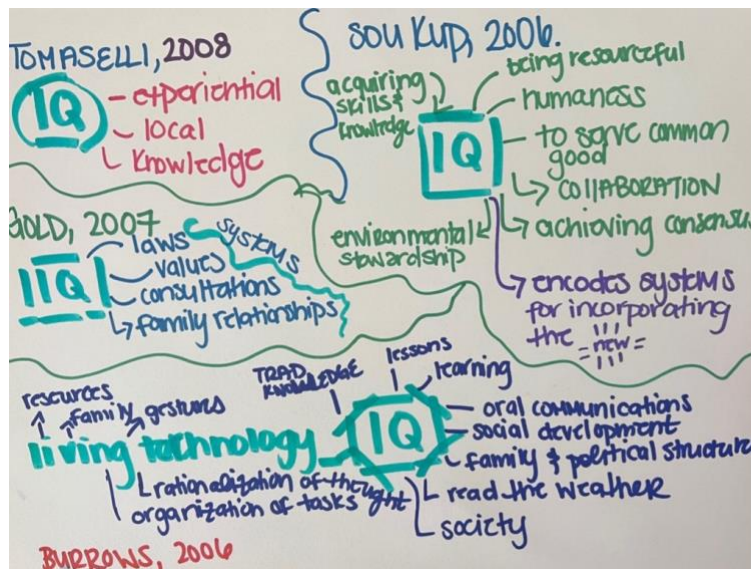 TOMASELLI, 2008
IQ
experiential
local
knowledge
SOUKUP, 2006.
acquiring
skills &
knowledge
IQ
being resourceful
humaness
to serve common
good
COllABORATION
achieving consensus
environmental
stewardship
encodes systems
for incorporating
the new
GOLD, 2007
IQ
laws
values
consultations
family relationships
systems
resources
family
gestures
living technology
rationalization of thought
organization of tasks
TRAD.
KNOWLEDGE
lessons
learning
IQ
oral communications
social development
family & political structure
read the weather
society
BURROWS, 2006